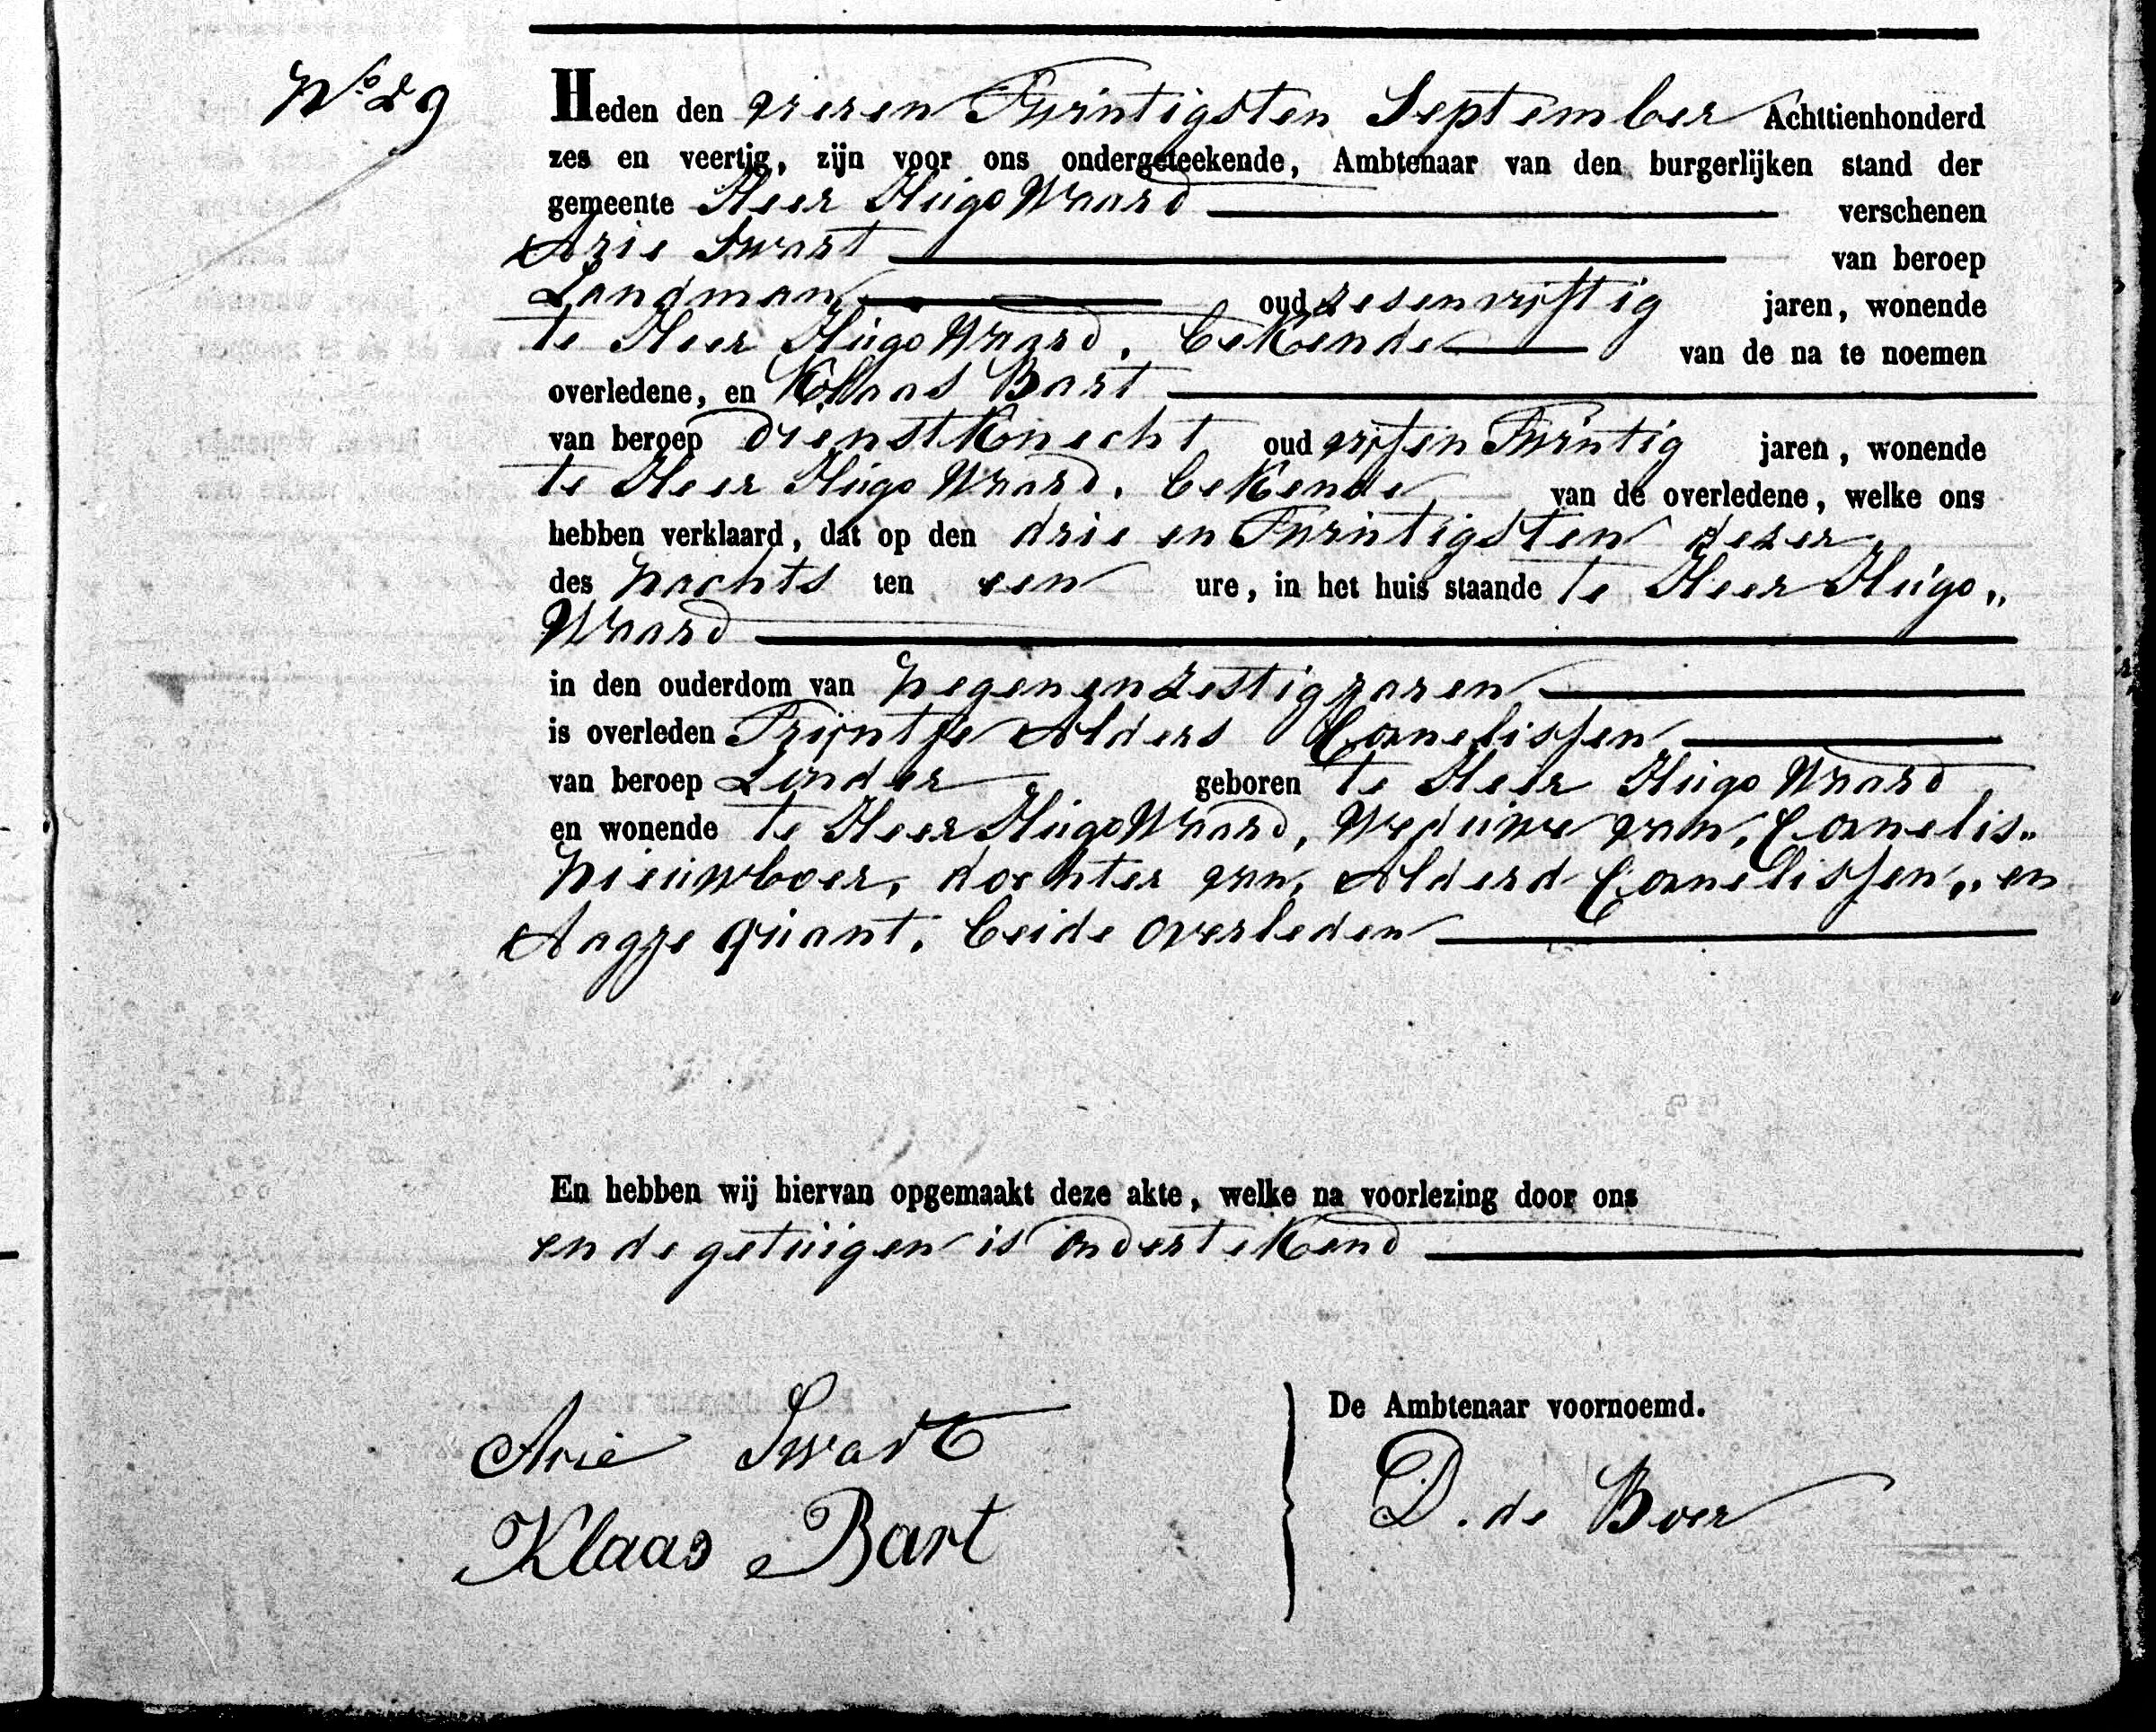 No 29
Heden den vier en Twintigsten September Achttienhonderd
zes en veertig, zijn voor ons ondergeteekende, Ambtenaar van den burgerlijken stand der
gemeente Heer Hugo Waard verschenen
Arie Swart van beroep
Landman oud zesenvijftig jaren, wonende
te Heer Hugo Waard, bekende van de na te noemen
overledene, en Klaas Bart
van beroep Dienstknecht oud vijfen Twintig jaren, wonende
te Heer Hugo Waard, bekende van de overledene, welke ons
hebben verklaard, dat op den drie en Twintigsten dezer
des Nachts ten een ure, in het huis staande te Heer Hugo„
Waard
in den ouderdom van Negen en zestig jaren
is overleden Trijntje Alders Cornelissen
van beroep Zonder geboren te Heer Hugo Waard
en wonende te Heer Hugo Waard, Weduwe van, Cornelis„
Nieuwboer, dochter van, Alderd Cornelissen„ en
Aagje Quant, beide overleden
En hebben wij hiervan opgemaakt deze akte, welke na voorlezing door ons
en de getuigen is ondertekend
De Ambtenaar voornoemd.
Arie Swart
D. de Boer
Klaas Bart